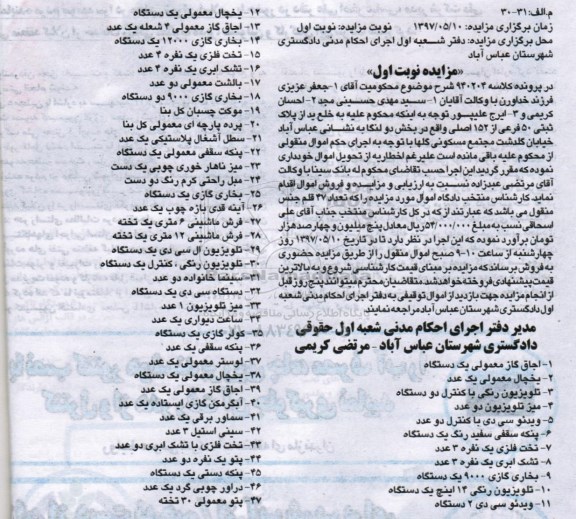 م الف: ۳۱-۳۰
زمان برگزاری مزایده: ۱۳۹۷/۰۵/۱۰ نوبت مزایده: نوبت اول
محل برگزاری مزایده: دفتر شعبه اول اجرای احکام مدنی دادگستری
شهرستان عباس آباد
«مزایده نوبت اول»
در پرونده کلاسه ۹۴۰۲۰۴ شرح موضوع محکومیت آقای ۱-جعفر عزیزی
فرزند خداورن با وکالت آقایان ۱- سید مهدی حسینی مجد ۲- احسان
کریمی و ۳- ایرج علیپور توجه به اینکه محکوم علیه به خلع ید از پلاک
ثبتی ۵۰ فرعی از ۱۵۲ اصلی واقع در بخش دو لنگا به نشانی عباس آباد
خیابان گلدشت مجتمع مسکونی گلها با توجه به اجرای حکم اموال منقولی
از محکوم علیه باقی مانده است علیرغم اخطاریه از تحویل اموال خودداری
نموده که مقرر گردید این اجرا حسب تقاضای محکوم له بانک سینا با وکالت
آقای مرتضی عبدزاده نسبت به ارزیابی و مزایده و فروش اموال اقدام
نماید. کارشناس منتخب دادگاه اموال مورد مزایده را که تعداد ۴۷ قلم جنس
منقول می باشد که عبارتند از که در کل کارشناس منتخب جناب آقای علی
اسحاقی نسب به مبلغ ۵۴/۰۰۰/۰۰۰ ریال معادل پنج میلیون و چهارصد هزار
تومان برآورد نموده که این اجرا در نظر دارد تا در تاریخ ۱۳۹۷/۰۵/۱۰ روز
چهارشنبه از ساعت ۱۰-۹ صبح اموال منقول را از طریق مزایده حضوری
به فروش برساند که مزایده بر مبنای قیمت کارشناسی شروع و به بالاترین
قیمت پیشنهادی فروخته خواهد شد. متقاضیان محترم میتوانند پنج روز قبل
از انجام مزایده جهت بازدید از اموال توقیفی به دفتر اجرای احکام مدنی شعبه
اول دادگستری عباس آباد مراجعه نمایند.
مدیر دفتر اجرای احکام مدنی شعبه اول حقوقی
دادگستری شهرستان عباس آباد - مرتضی کریمی
۱- اجاق گاز معمولی یک دستگاه
۲- یخچال معمولی یک عدد
۳- تلویزیون رنگی با کنترل دو دستگاه
۴- میز تلویزیون دو عدد
۵- ویدئو سی دی با کنترل دو عدد
۶- پنکه سقفی سفید رنگ یک دستگاه
۷- تخت فلزی یک نفره ۳ عدد
۸- تشک ابری یک نفره ۳ عدد
۹- بخاری گازی ۹۰۰۰ یک دستگاه
۱۰- تلویزیون رنگی ۱۴ اینچ یک دستگاه
۱۱- ویدئو سی دی ۲ دستگاه
۱۲- یخچال معمولی یک دستگاه
۱۳- اجاق گاز معمولی ۴ شعله یک عدد
۱۴- بخاری گازی ۱۲۰۰۰ یک دستگاه
۱۵- تخت فلزی یک نفره ۴ عدد
۱۶- تشک ابری یک نفره ۴ عدد
۱۷- بالشت معمولی دو عدد
۱۸- بخاری گازی ۹۰۰۰ دو دستگاه
۱۹- موکت چسبان کل بنا
۲۰- پرده پارچه ای معمولی کل بنا
۲۱- سطل آشغال پلاستیکی یک عدد
۲۲- پنکه سقفی معمولی یک دستگاه
۲۳- میز ناهار خوری چوبی یک دست
۲۴- مبل راحتی کرم رنگ دو دست
۲۵- بخاری گازی یک دستگاه
۲۶- آینه قدی نازه چوب یک عدد
۲۷- فرش ماشینی ۶ متری یک تخته
۲۸- فرش ماشینی ۱۲ متری یک تخته
۲۹- تلویزیون ال سی دی یک دستگاه
۳۰- تلویزیون رنگی ، کنترل یک دستگاه
۳۱- سینما خانواده دو عدد
۳۲- دستگاه سی دی یک دستگاه
۳۳- میز تلویزیون ۱ عدد
۳۴- ساعت دیواری یک عدد
۳۵- کولر گازی یک دستگاه
۳۶- پنکه سقفی یک عدد
۳۷- لوستر معمولی یک عدد
۳۸- یخچال معمولی یک دستگاه
۳۹- اجاق گاز معمولی یک عدد
۴۰- آبگرمکن گازی ایستاده یک عدد
۴۱- سماور برقی یک عدد
۴۲- سینی استیل ۳ عدد
۴۳- تخت فلزی با تشک ابری دو عدد
۴۴- پتو یک نفره دو عدد
۴۵- پنکه دستی یک دستگاه
۴۶- دراور چوبی گرد یک عدد
۴۷- پتو معمولی ۳۰ تخته